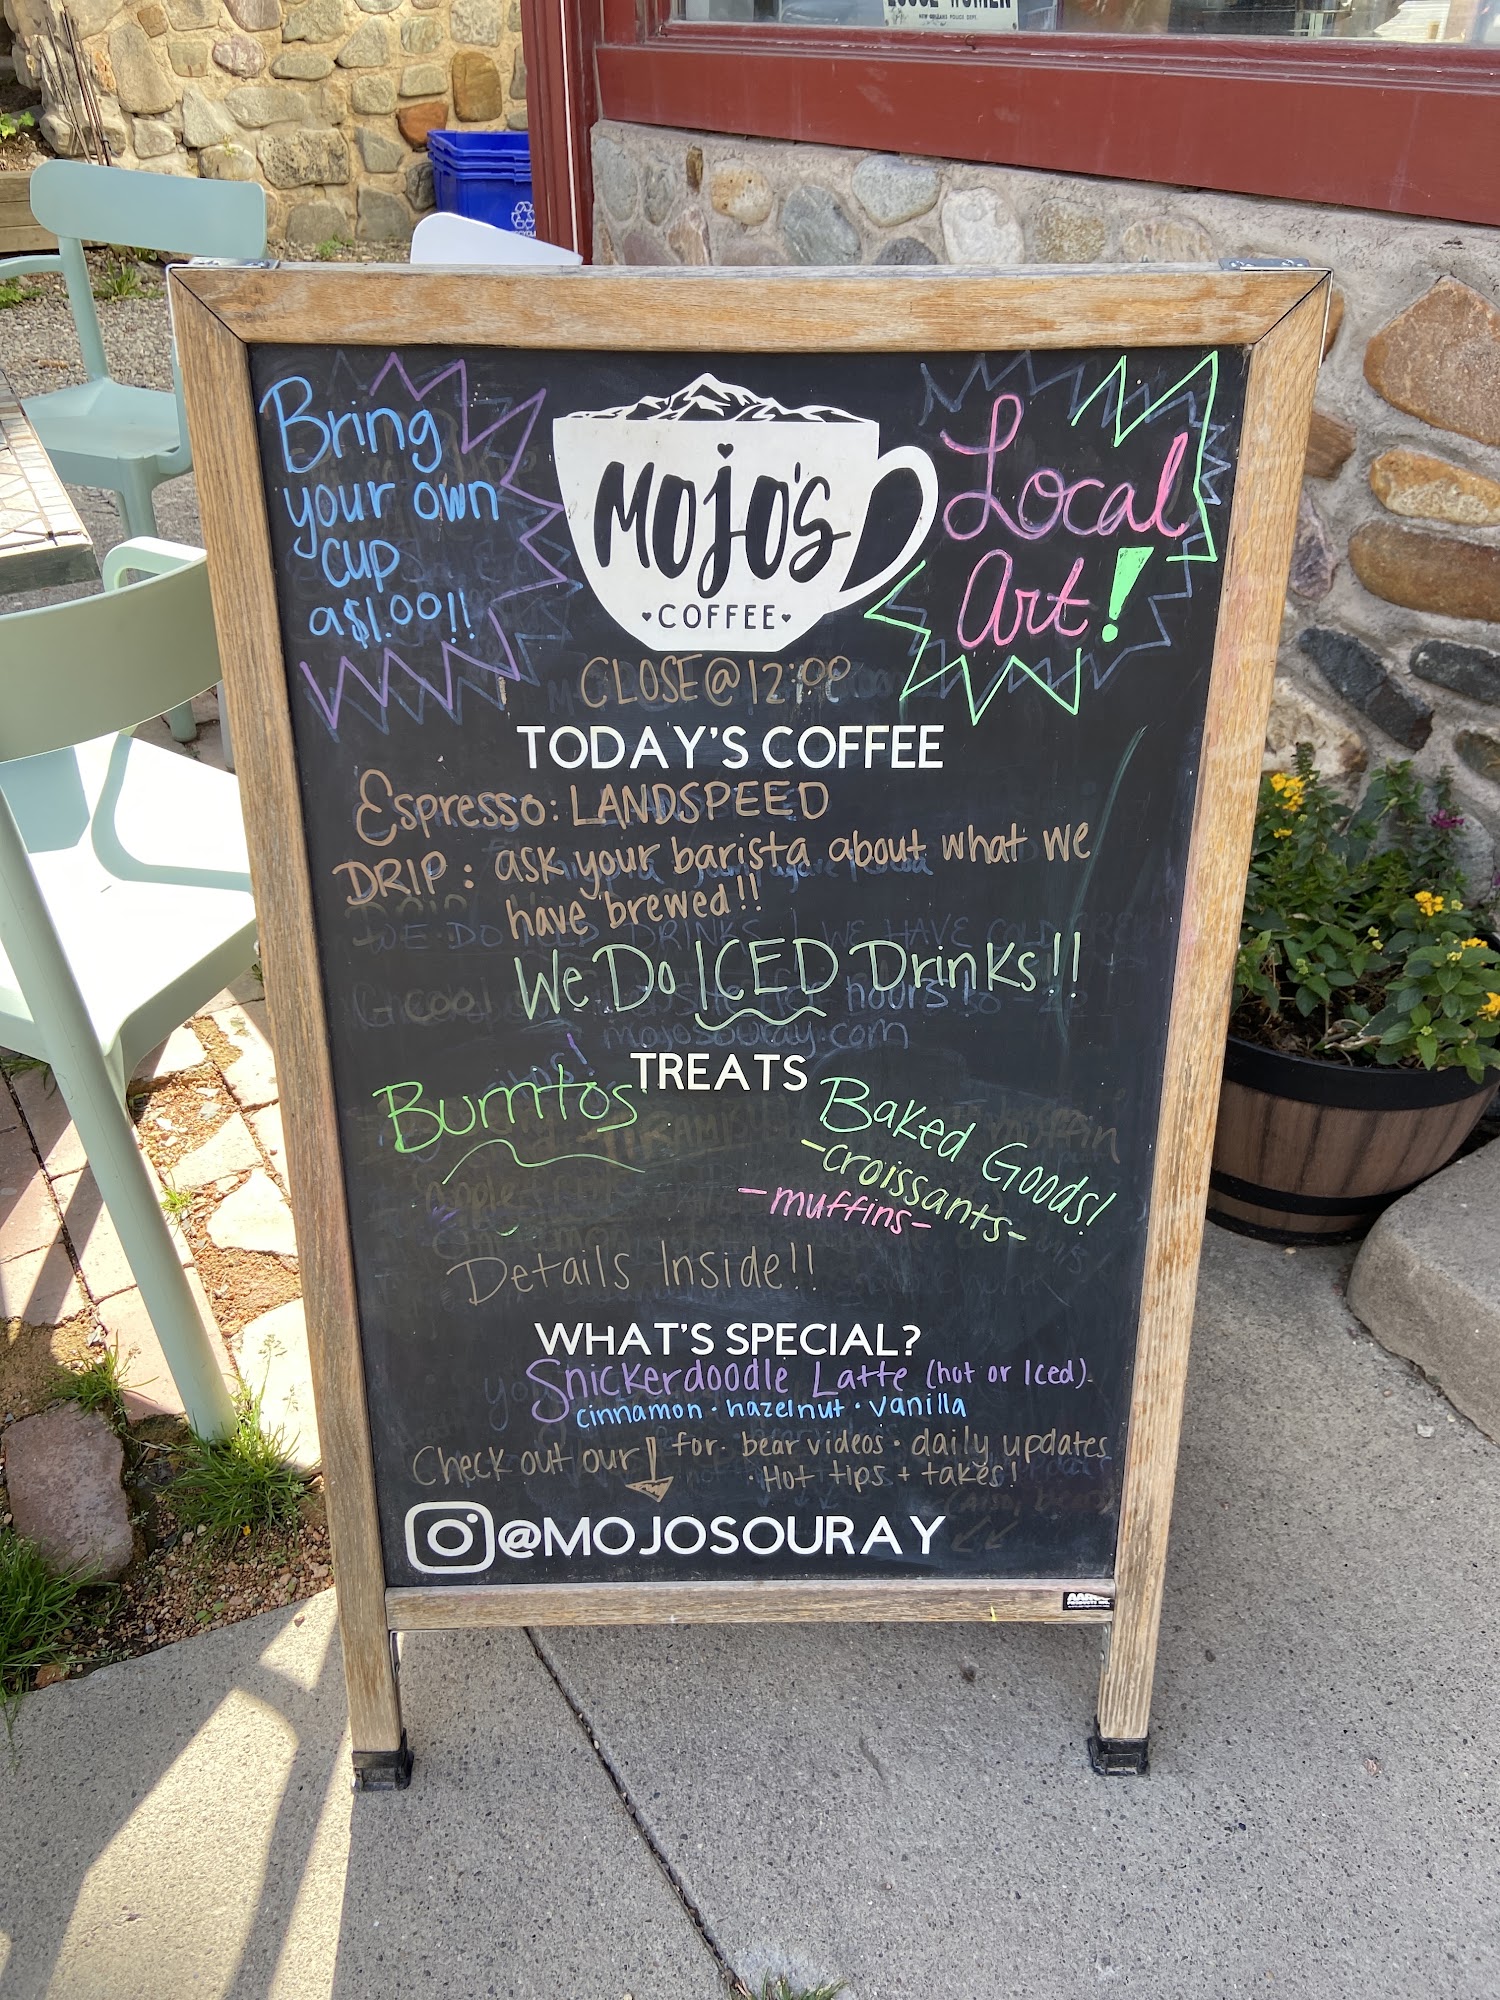 LOOSE WOMEN
NEW ORLEANS POLICE DEPT.
RECYCLE
Bring
your own
cup
a$1.00!!
MOJO'S
COFFEE
Local
Art!
CLOSE@12:00
TODAY'S COFFEE
Espresso: LANDSPEED
DRIP: ask your barista about what we
have brewed!!
We Do ICED Drinks!!
mojosouray.com
TREATS
Burritos
Baked Goods!
-croissants-
-muffins-
Details Inside!!
WHAT'S SPECIAL?
Snickerdoodle Latte (hot or Iced).
cinnamon · hazelnut · vanilla
Check out our for · bear videos · daily updates
· Hot tips + takes!
@MOJOSOURAY